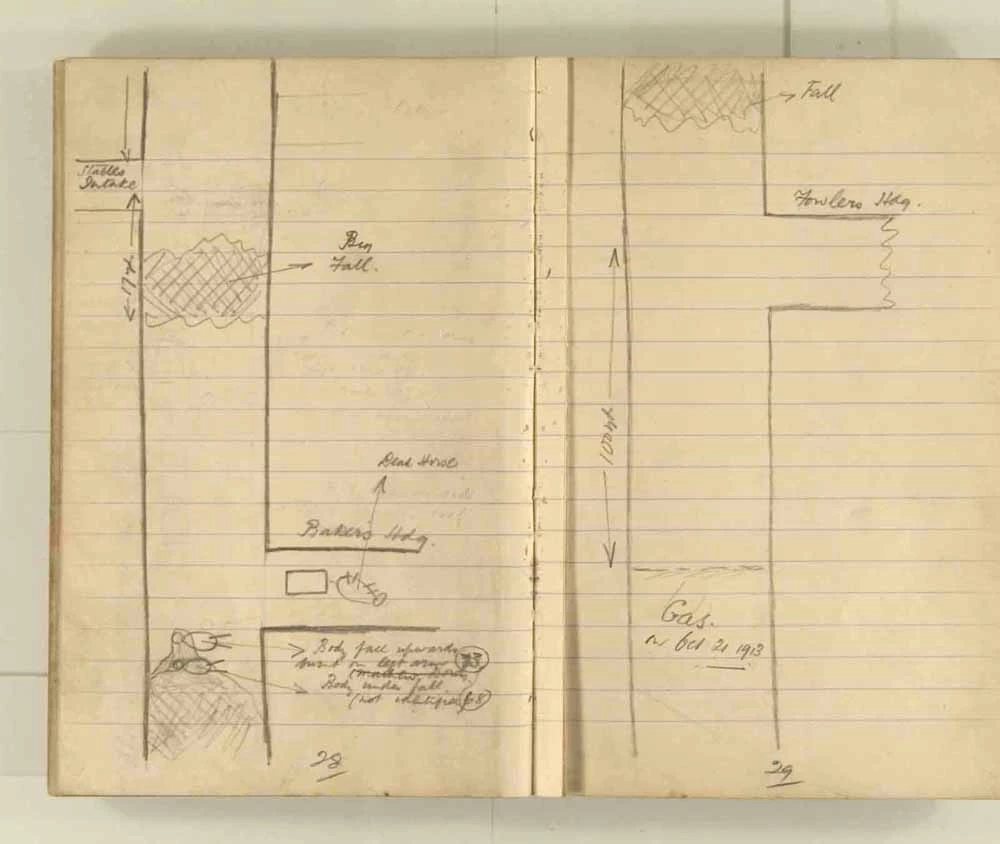 Stables
Intake
17 yd.
Big
Fall.
Dead Horse
Bakers Hdg.
Body face upwards
burnt on left arm 73
Body under fall
(not identified 68)
28
Fall
Fowlers Hdg.
100 yds
Gas.
on Oct 21 1913
29